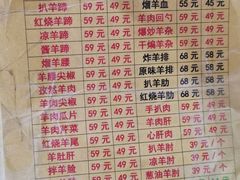 扒羊蹄 59元 49元 熘羊血 55元 45元
红烧羊蹄 59元 49元 羊肉回勺 59元 49元
凉羊蹄 59元 49元 爆炒羊杂 59元 49元
酱羊蹄 59元 49元 干煸羊杂 59元 49元
熘羊腰 59元 49元 炸羊排 68元 58元
羊腰尖椒 59元 49元 原味羊排 68元 58元
孜然羊肉 59元 49元 扒羊肋 68元 58元
羊肉尖椒 59元 49元 红烧羊肋 68元 58元
羊肉瓜片 59元 49元 手扒肉 59元 49元
羊肉芹菜 59元 49元 心肝肉 59元 49元
红烧羊尾 59元 49元 扒羊肘 39元/个
羊肚肝 59元 49元 凉羊肘 39元/个
拌羊脸 59元 49元 葱油羊肘 39元/个